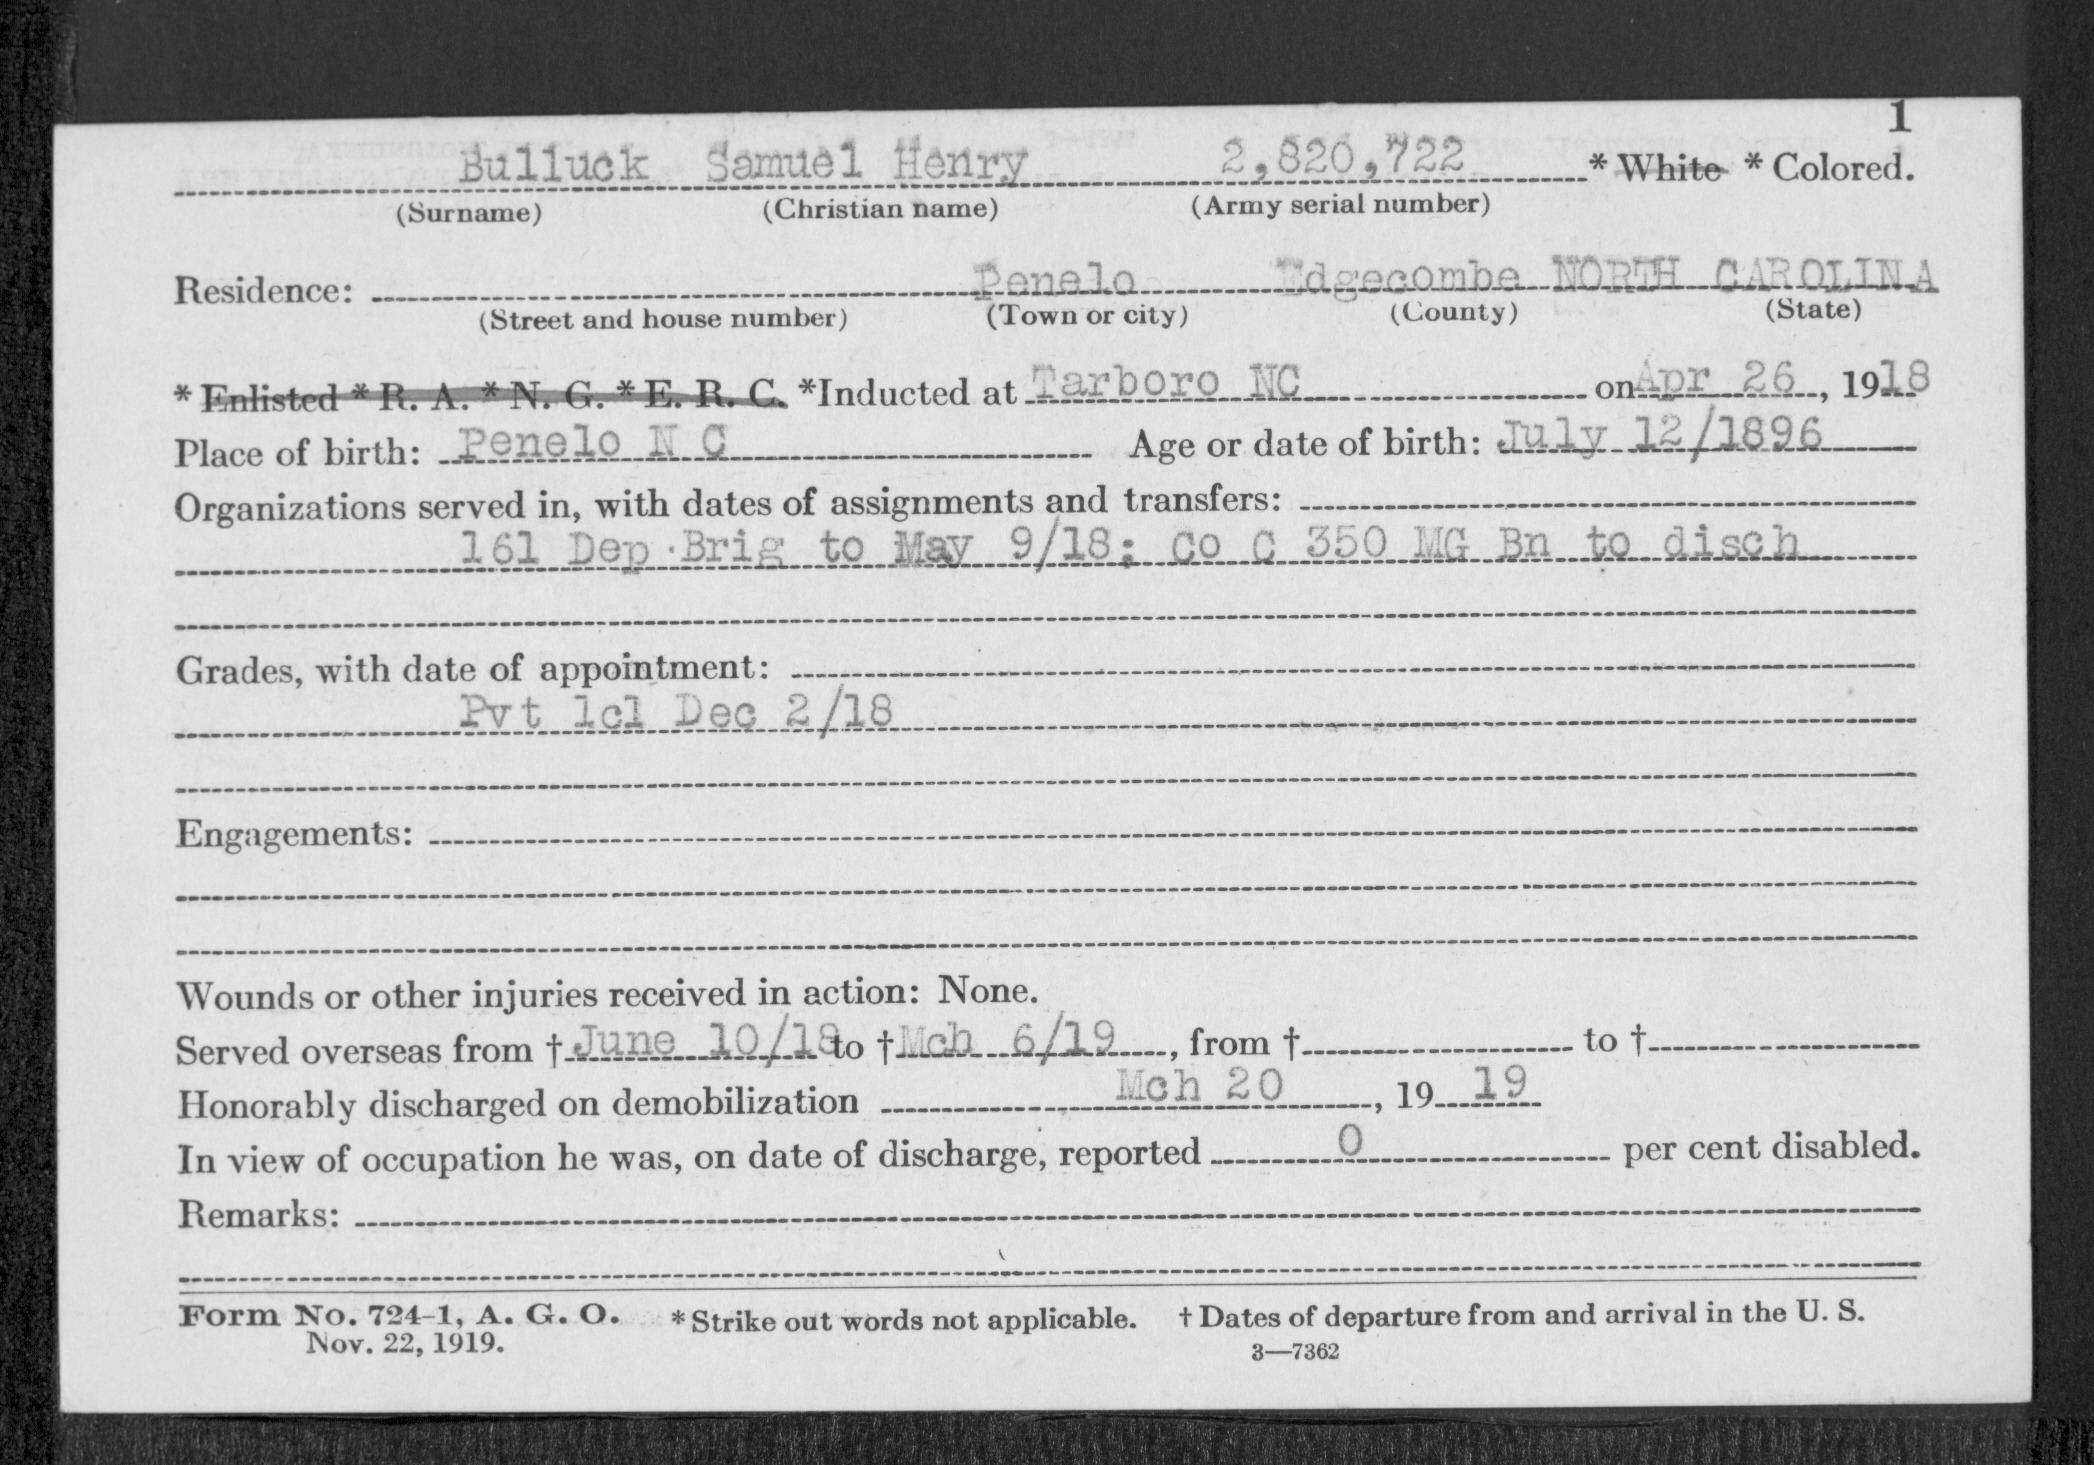 1
Bulluck Samuel Henry 2,820,722 * White * Colored.
(Surname) (Christian name) (Army serial number)
Residence: Penelo Edgecombe NORTH CAROLINA
(Street and house number) (Town or city) (County) (State)
* Enlisted * R. A. * N. G. * E. R. C. *Inducted at Tarboro NC on Apr 26, 1918
Place of birth: Penelo N C Age or date of birth: July 12/1896
Organizations served in, with dates of assignments and transfers:
161 Dep Brig to May 9/18; Co C 350 MG Bn to disch
Grades, with date of appointment:
Pvt 1cl Dec 2/18
Engagements:
Wounds or other injuries received in action: None.
Served overseas from † June 10/18 to † Mch 6/19, from † to †
Honorably discharged on demobilization Mch 20, 19 19
In view of occupation he was, on date of discharge, reported 0 per cent disabled.
Remarks:
Form No. 724-1, A. G. O. * Strike out words not applicable. † Dates of departure from and arrival in the U. S.
Nov. 22, 1919. 3—7362